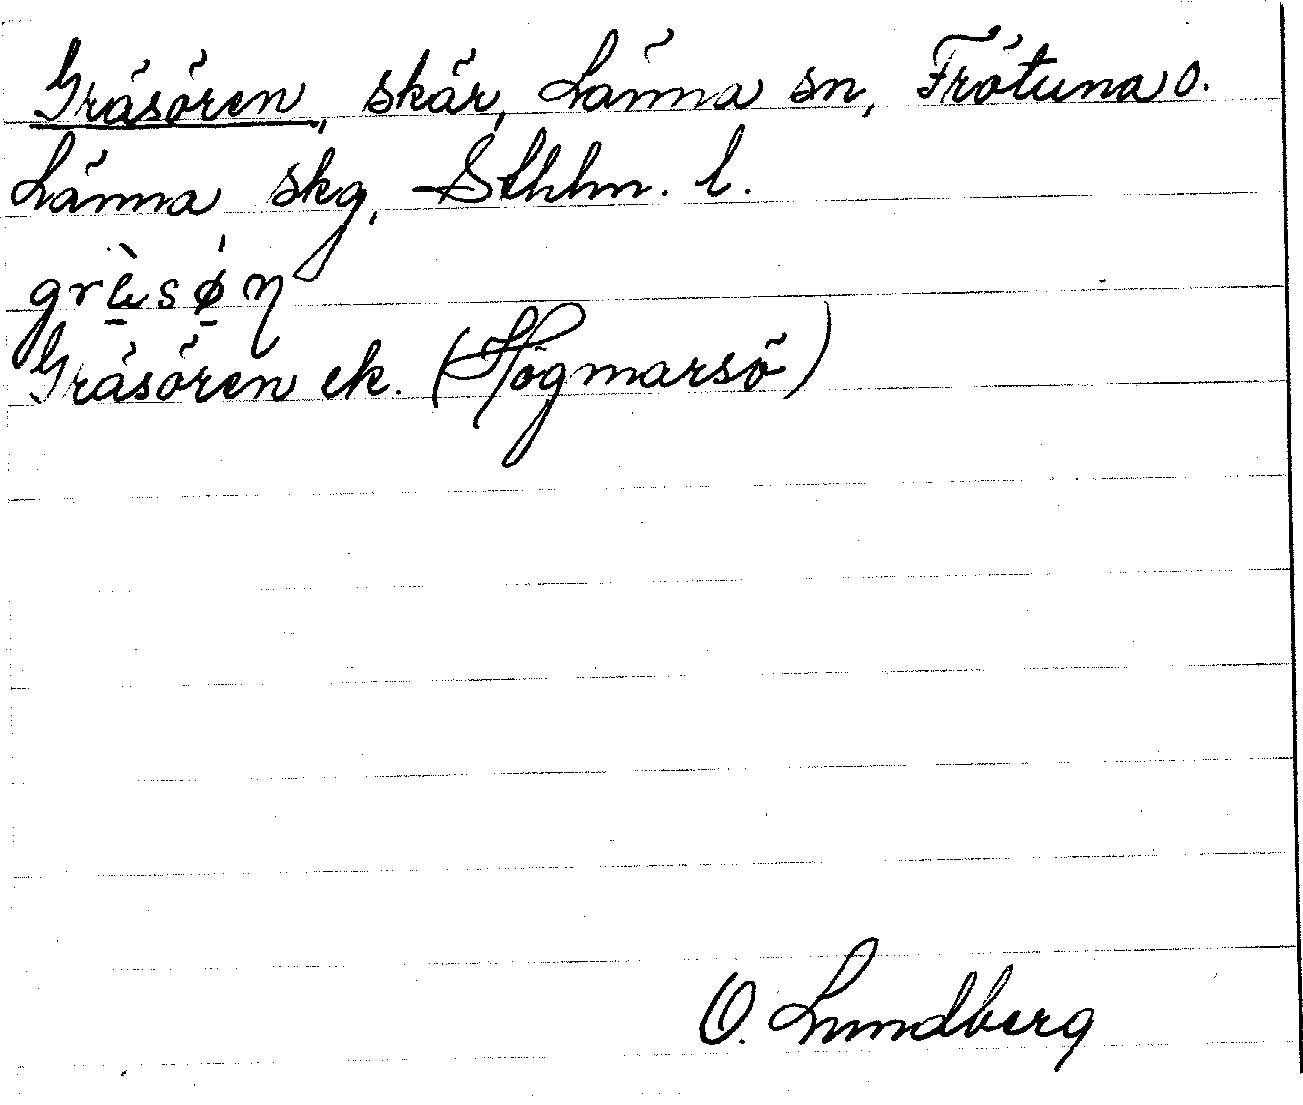 Gräsören, skär, Länna sn, Frötuna o.
Länna skg, Sthlm. l.
Gräsören ek. (Högmarsö)
O. Lundberg